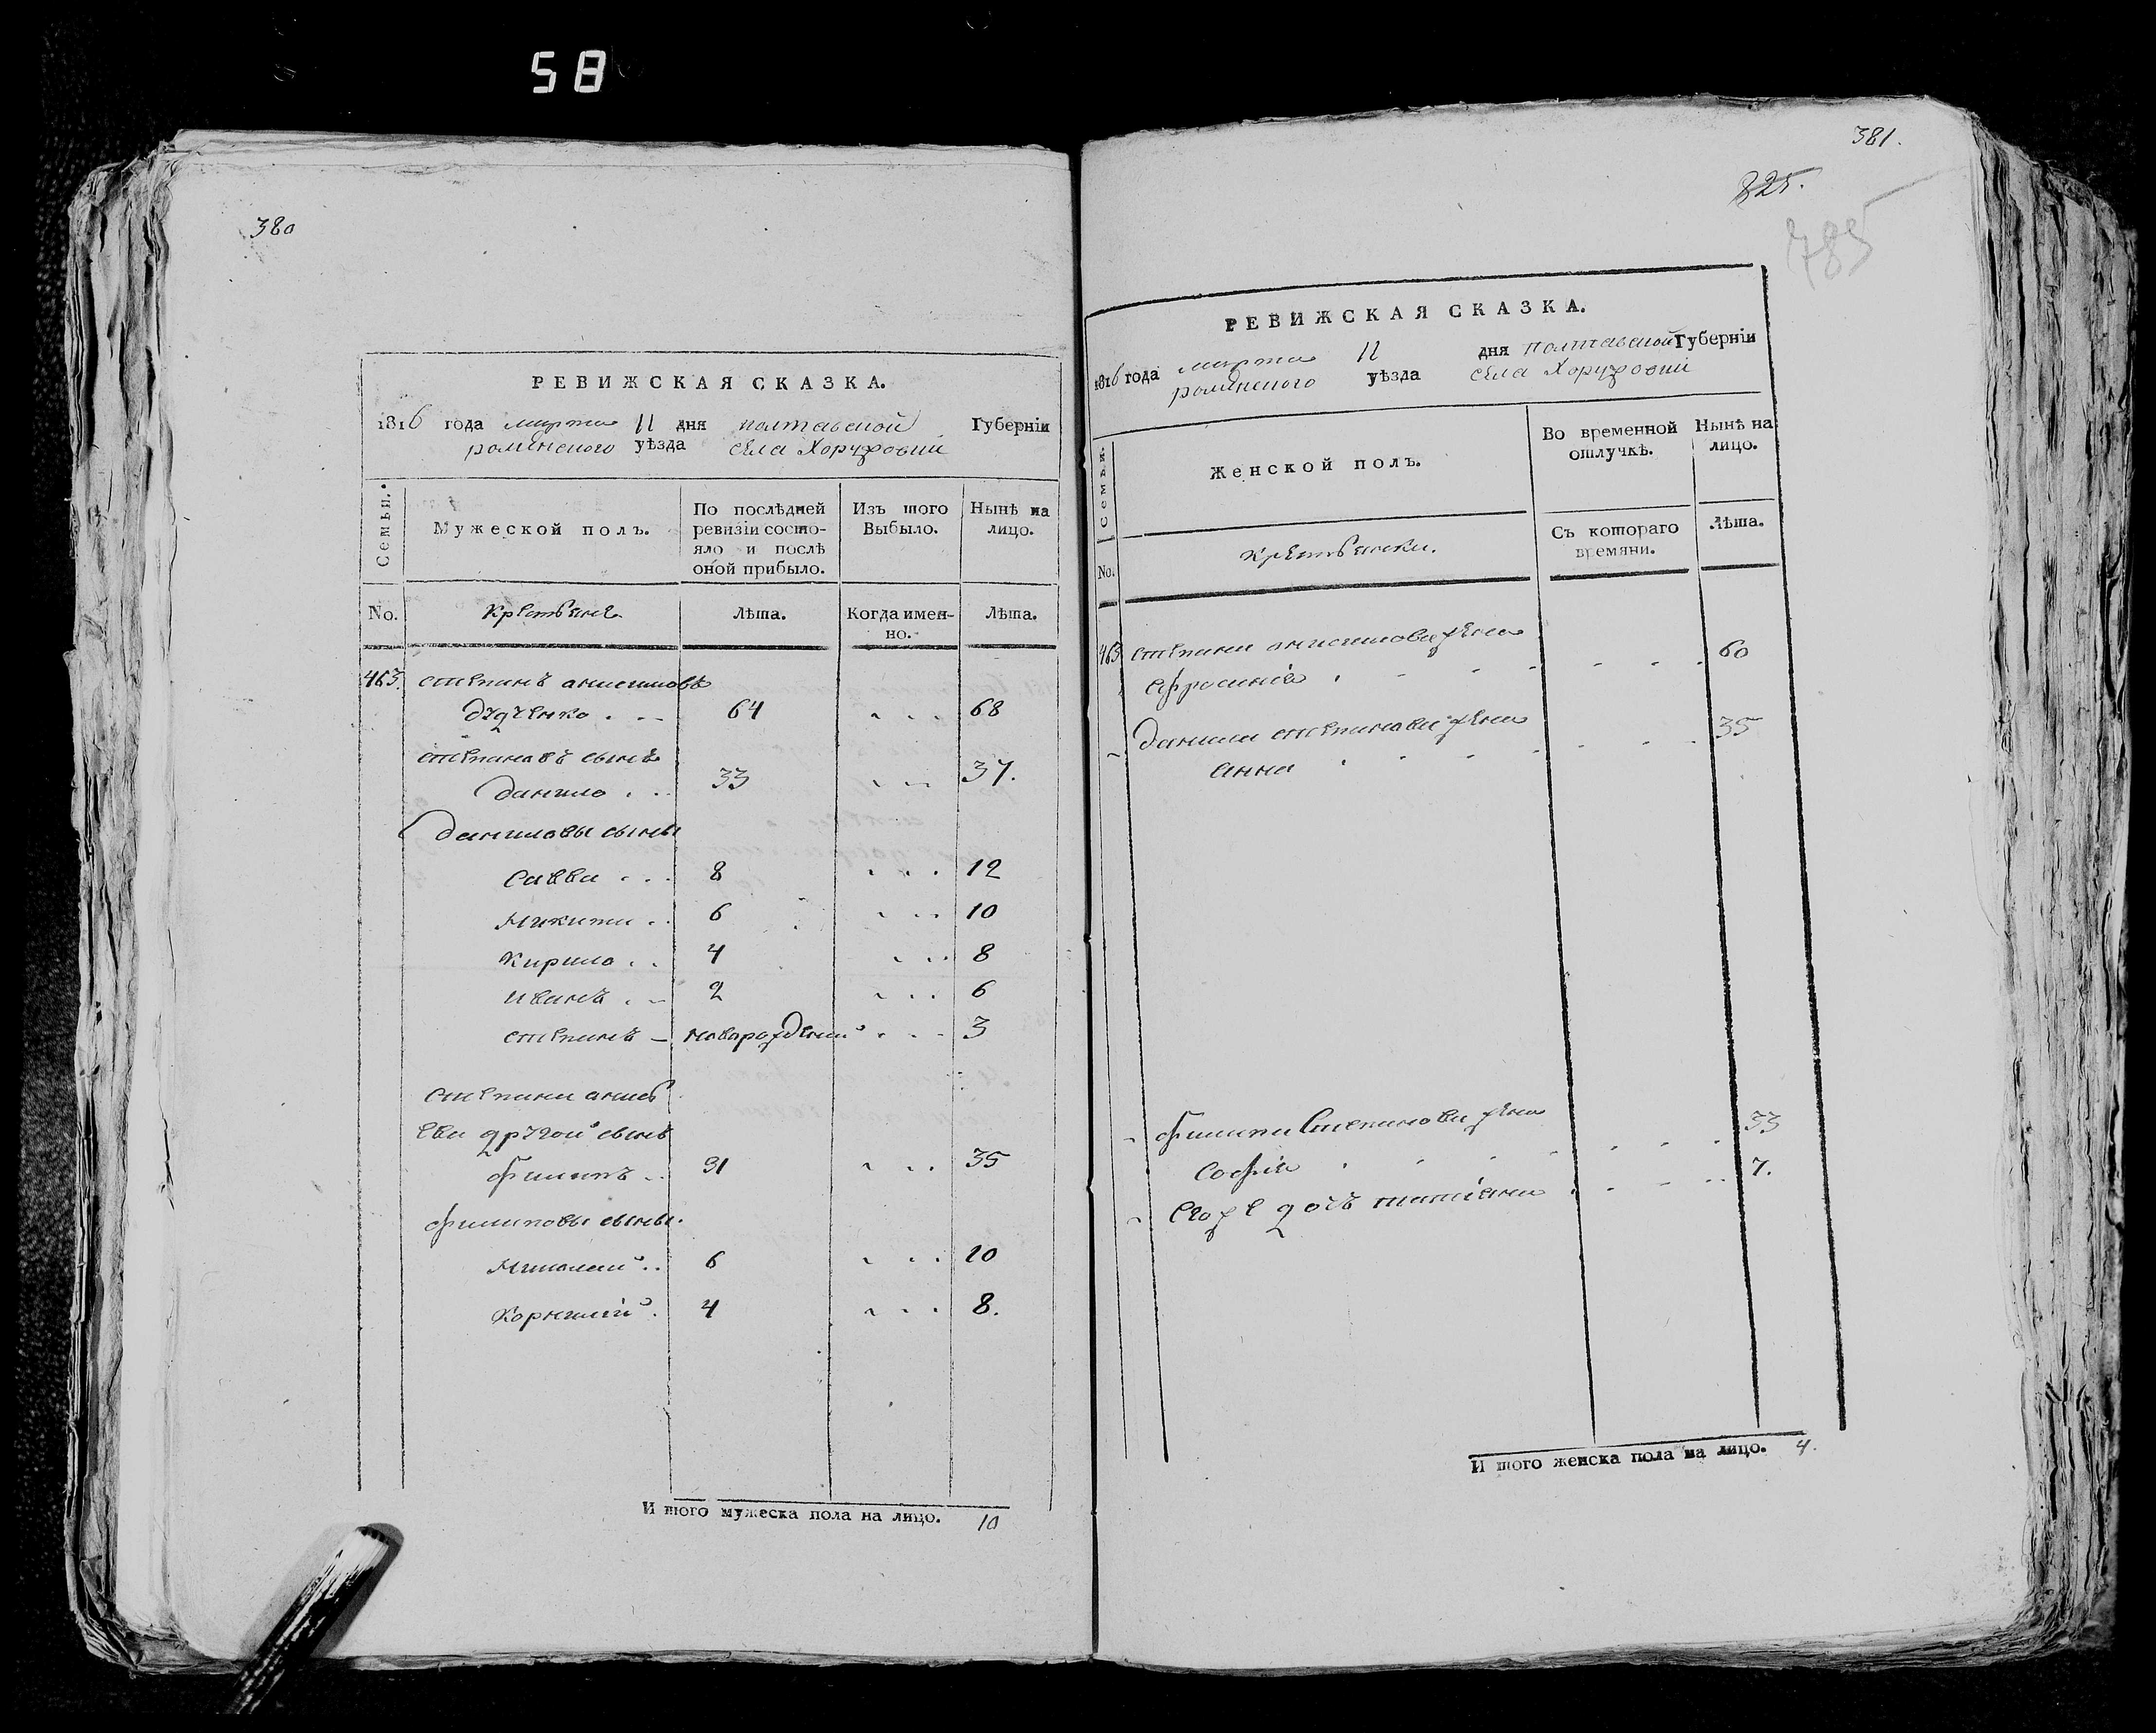 58
380
РЕВИЖСКАЯ СКАЗКА.
1816 года марта 11 дня полтавской Губернiи
роменского уѣзда села Хоружовки
Семьи.
Мужеской полъ.
По послѣдней ревизiи состояло и послѣ оной прибыло.
Изъ того Выбыло.
Нынѣ на лицо.
No.
Крестьяне
Лѣта.
Когда именно.
Лѣта.
463. степанъ анисимовъ
дудченко . . . 64 . . . 68
степановъ сынъ
данило . . . 33 . . . 37.
даниловы сыны
савва . . . 8 . . . 12
микита . . 6 . . . 10
кирило . . 4 . . . 8
иванъ . . 2 . . . 6
степанъ –новорожденный . . . 3
степана
ева другой сынъ
филипъ . . 31 . . . 35
филиповы сыны.
Миколай . . 6 . . . 10
Корнилiй . 4 . . . 8.
И того мужеска пола на лицо. 10
381.
825.
785
РЕВИЖСКАЯ СКАЗКА.
1816 года марта 11 дня полтавской Губернiи
роменского уѣзда села Хоружовки
Семьи.
Женской полъ.
Во временной отлучкѣ.
Нынѣ на лицо.
No.
Крестьянки.
Съ котораго времяни.
Лѣта.
463 степана анисимова жена
афросинiя . . . . . . 60
данила степанова жена
анна . . . . . . 35
филипа Степанова жена
софiя . . . . . . 33
егоже дочь татiяна . . . . 7.
И того женска пола на лицо. 4.